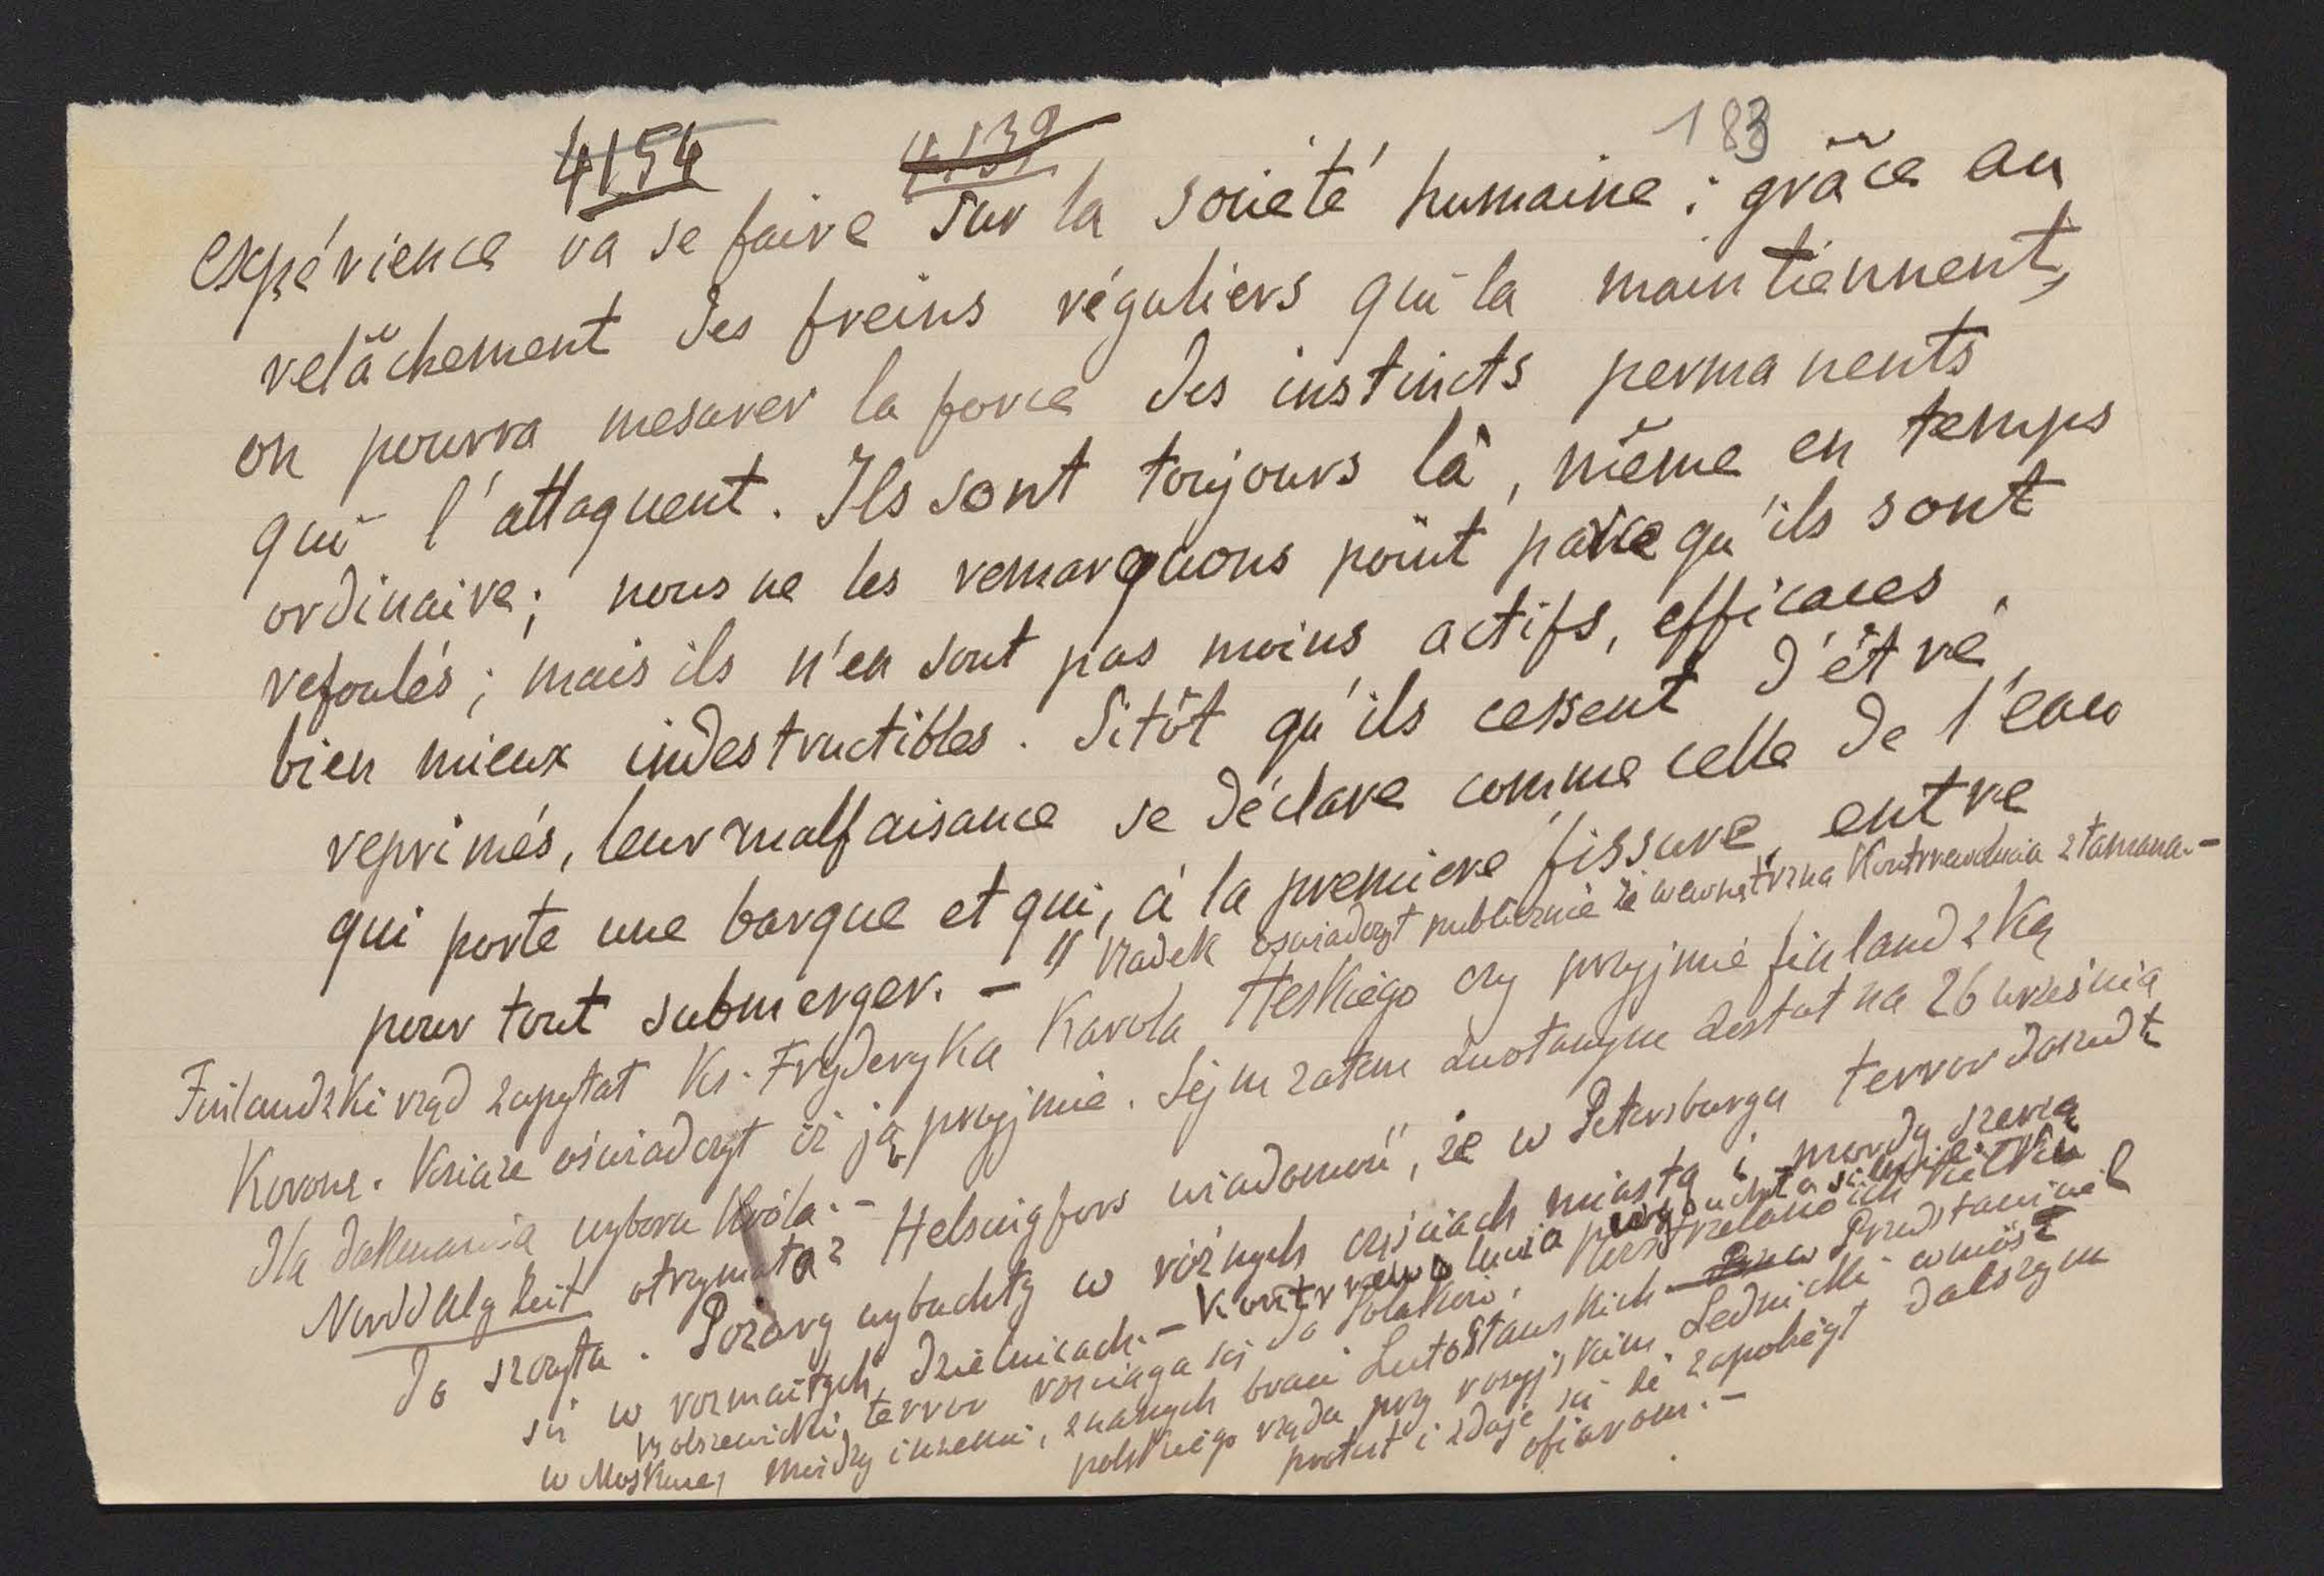 4154 4139 183
expérience va se faire sur la societé humaine : grâce au
relâchement des freins réguliers qui la maintiennent,
on pourra mesurer la force des instincts permanents
qui l'attaquent. Ils sont toujours là, même en temps
ordinaire; nous ne les remarquons point parce qu'ils sont
refoulés; mais ils n'en sont pas moins actifs, efficaces,
bien mieux indestructibles. Sitôt qu'ils cessent d'être
reprimés, leur malfaisance se déclare comme celle de l'eau
qui porte une barque et qui, à la première fissure, entre
pour tout submerger. - " Radek oświadczył publicznie iż wewnętrzna Kontrrewolucia złamana.-
Finlandzki rząd zapytał Ks. Fryderyka Karola Heskiego czy przyjmie finlandzką
Koronę. Książe oświadczył iż ją przyjmie. Sejm zatem zwołanym został na 26 września
dla dokonania wyboru Króla.-
Nordd Alg Zeit otrzymała z Helsingfors wiadomość, że w Petersburgu terror doszedł
do szczytu. Pożary wybuchły w różnych częściach miasta i mordy szerzą
się w rozmaitych dzielnicach.- Kontrrewolucia
Bolszewicki terror rozciąga się do Polaków. Rozstrzelano ich kilku
w Moskwie, między innemi, znanych braci Lutosłauskich Przedstawiciel
polskiego rządu przy rosyjskim Lednicki wniósł
protest i zdaje się że zapobiegł dalszym
ofiarom.-